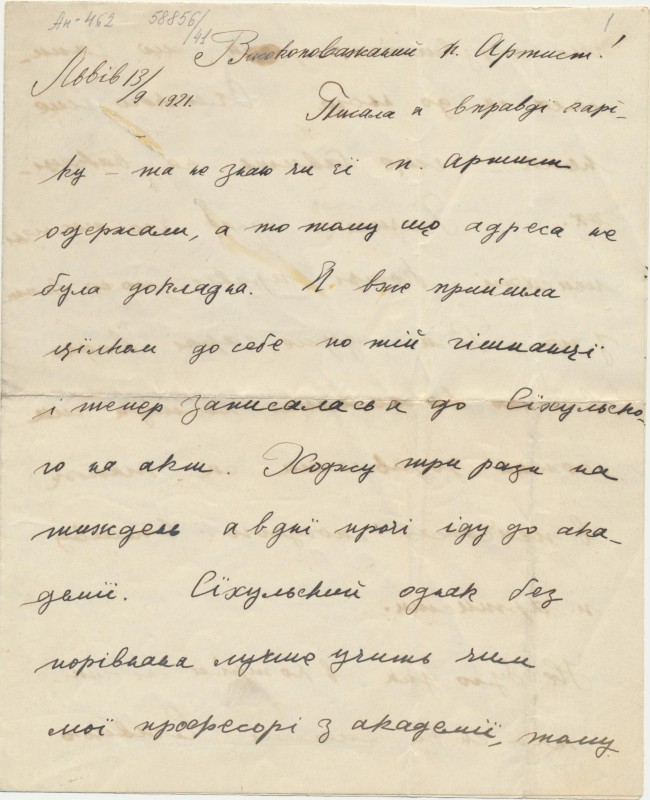 Ан-462 58856/41
1
Високоповажаний п. Артист!
Львів 13/9 1921.
Писала я вправді карі-
ку – та не знаю чи її п. Артист
одержали, а то тому що адреса не
була докладна. Я вже прийшла
цілком до себе по тій гішпанці
і тепер записалась а до Сіхульско-
го на акт. Ходжу три рази на
тиждень а в дні прочі іду до ака-
демії. Сіхульский однак без
порівнаня лучше учить чим
мої професорі з академії, тому